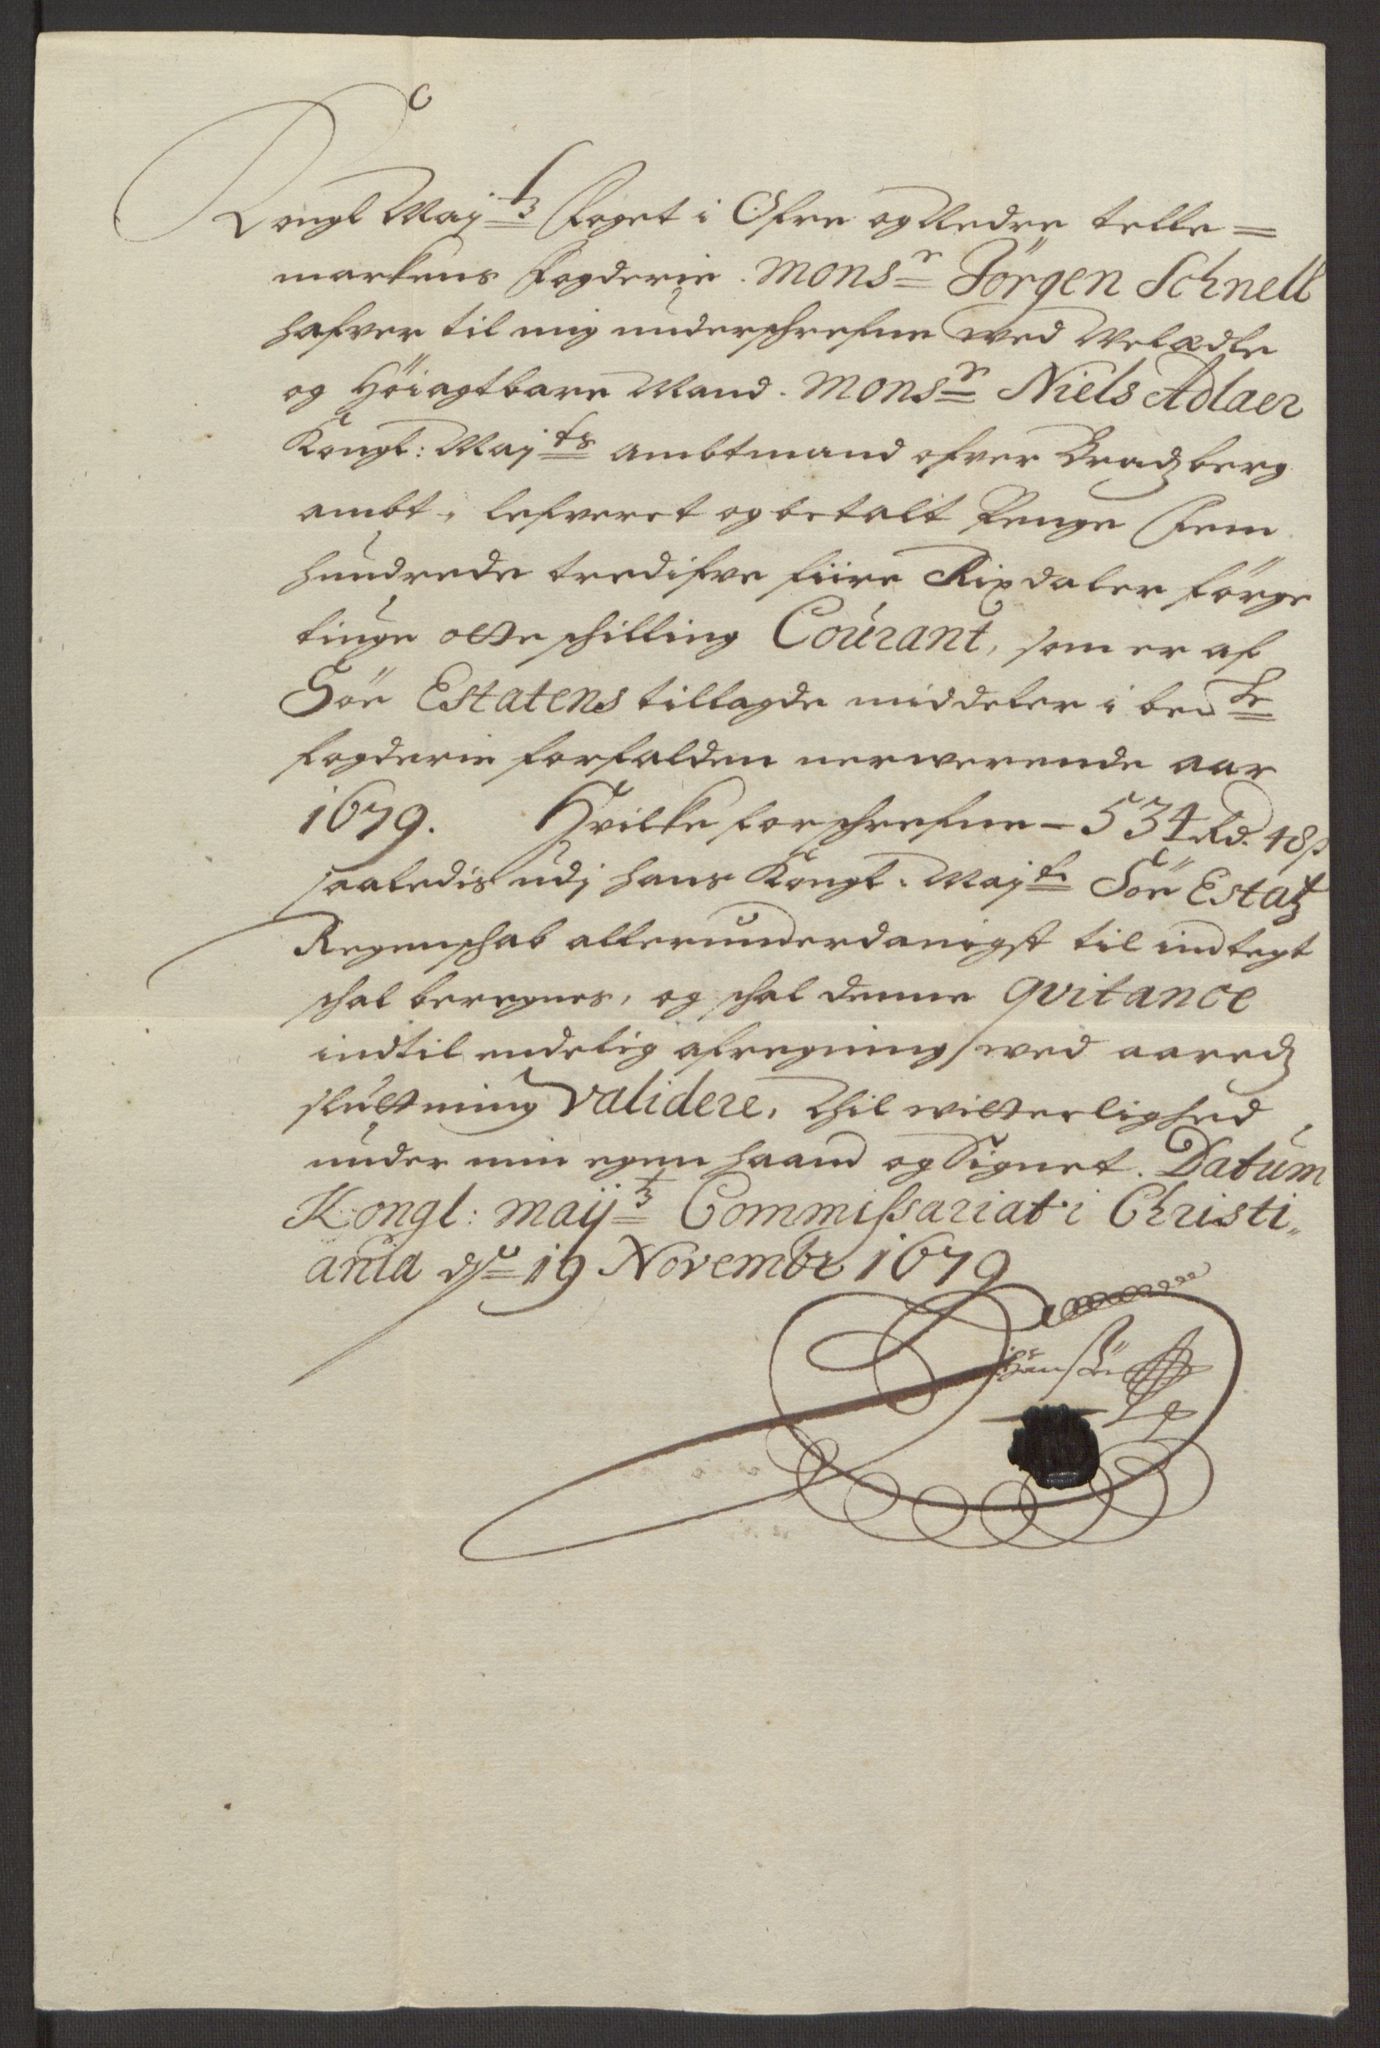 Kongl May:tz Foget i Öfre og Nedre telle=
markens Fogderie. Mons:r Jörgen Schnell
hafver til mig underschrefne wed Welædle
og Höiagtbare Mand. Mons:r Niels Adlaer
Kongl: May:ts ambtmand ofver Bradzberg
ambt, lefveret og betalt Penge Fem
hundrede tredifve fiire Rixdaler förge
tiuge otte schilling Courant, som er af
Söe Estatens tillagde middeler i bem:te
fogderie forfalden nerwerende aar
1679. Hvilke forschrefne - 534 Rd. 48 s
saaledis udj hans Kongl. May:ts Söe Estatz
Regenschab allerunderdanigst til indtegt
schal beregnes, og schal denne qvitance
indtil endelig afregning wed aaredz
sluttning validere. Thil witterlighed
under min egen haand og Signet. Datum
Kongl: Maij:tz Commissariat i Christi,,
ania d: 19 Novembr 1679